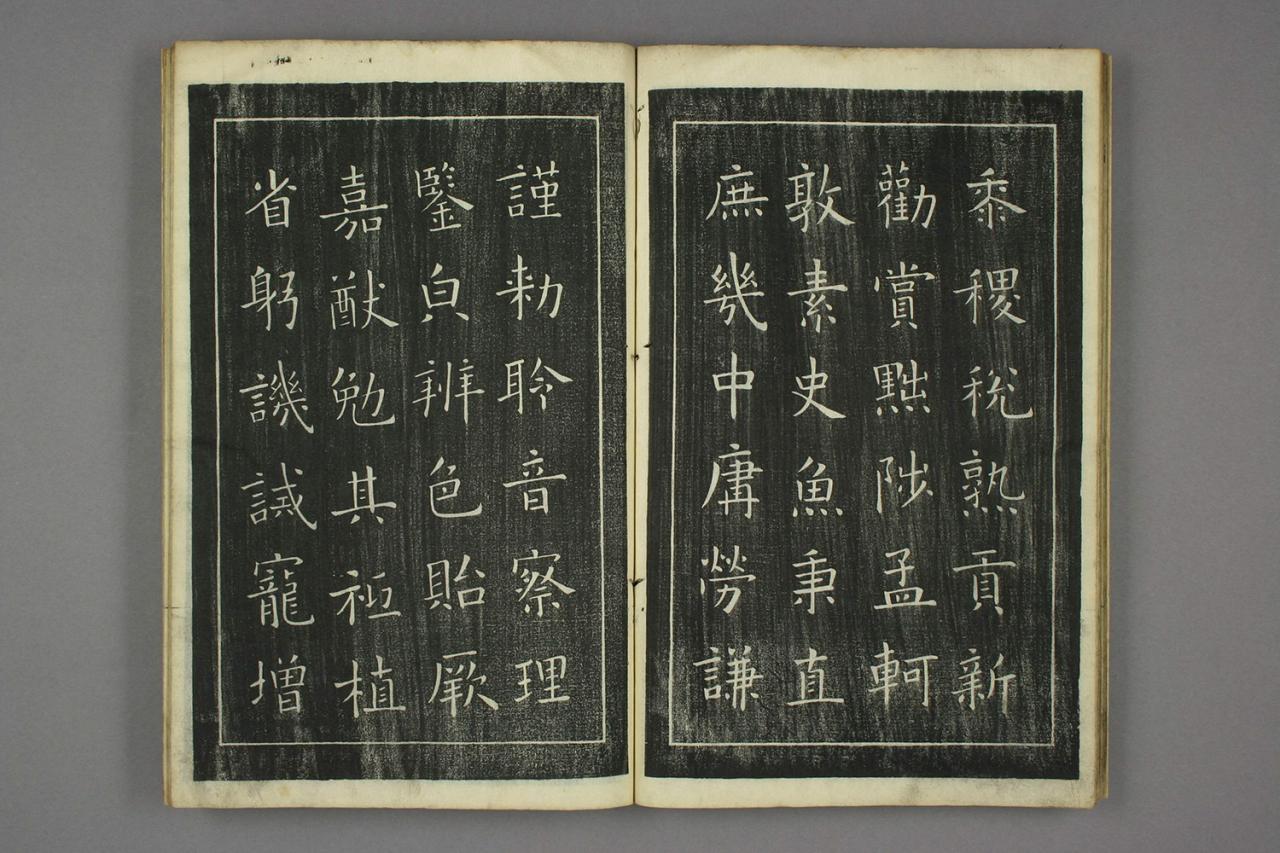 黍稷稅熟貢新
勸賞黜陟孟軻
敦素史魚秉直
庶幾中庸勞謙
謹勑聆音察理
鑒皃辨色貽厥
嘉猷勉其祗植
省躬譏誡寵增